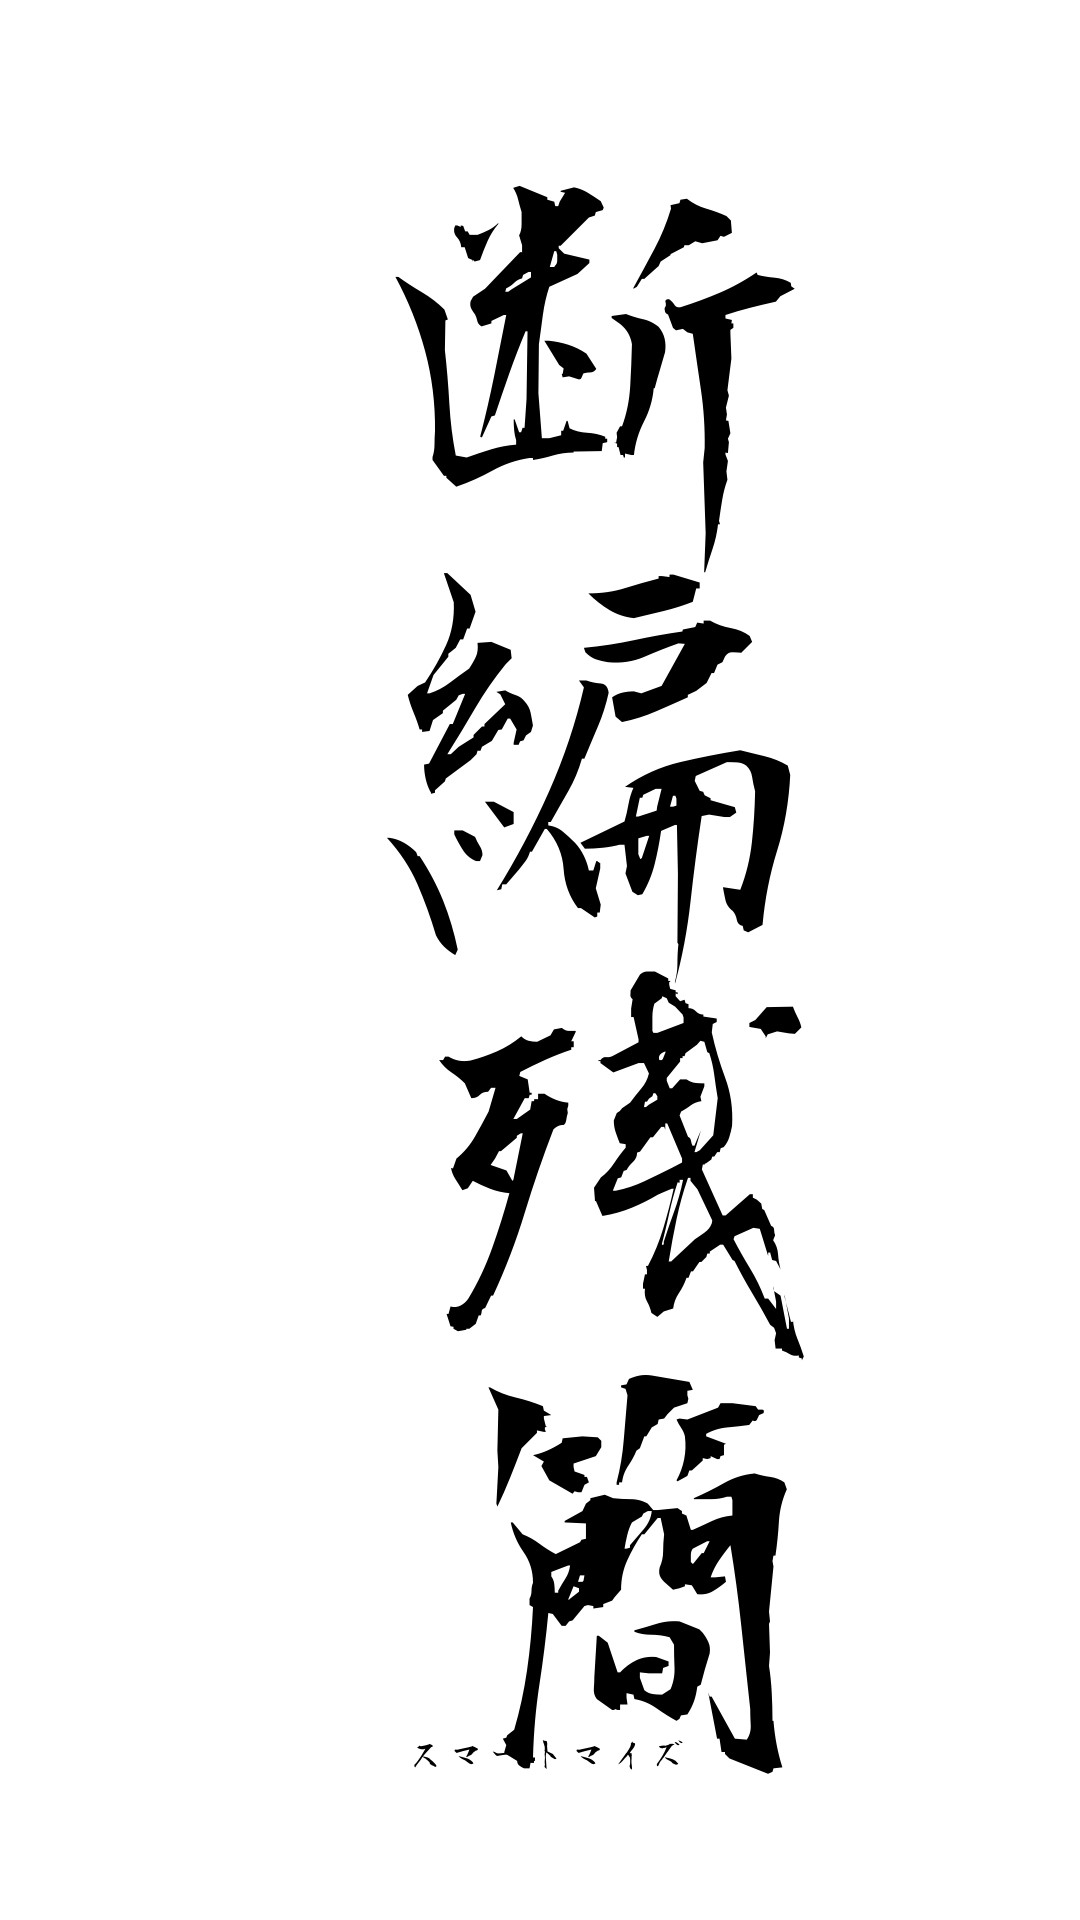 断編残簡
スマートマイズ